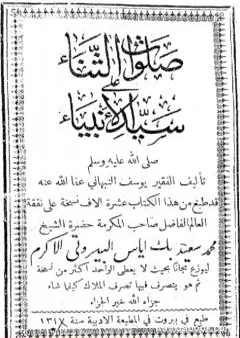 صلوات الثناء
على
سيد الأنبياء
صلى الله عليه وسلم
تأليف الفقير يوسف النبهاني عفا الله عنه
قد طبع من هذا الكتاب عشرة آلاف نسخة على نفقة
العالم الفاضل صاحب المكرمة حضرة الشيخ
محمد سعيد بك اياس البيروتي الاكرم
ليوزع مجاناً بحيث لا يعطى الواحد اكثر من نسخة
ثم هو يتصرف فيها تصرف الملاك كيفما شاء
جزاه الله خير الجزاء
طبع في بيروت في المطبعة الادبية سنة